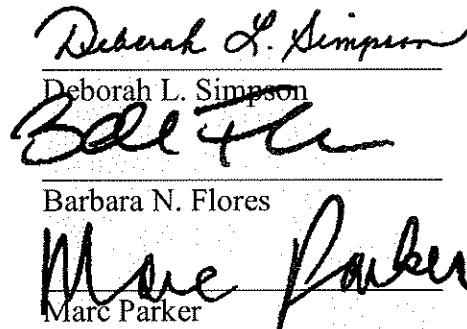 Deborah L. Simpson
Deborah L. Simpson
Barbara N. Flores
Marc Parker
Marc Parker